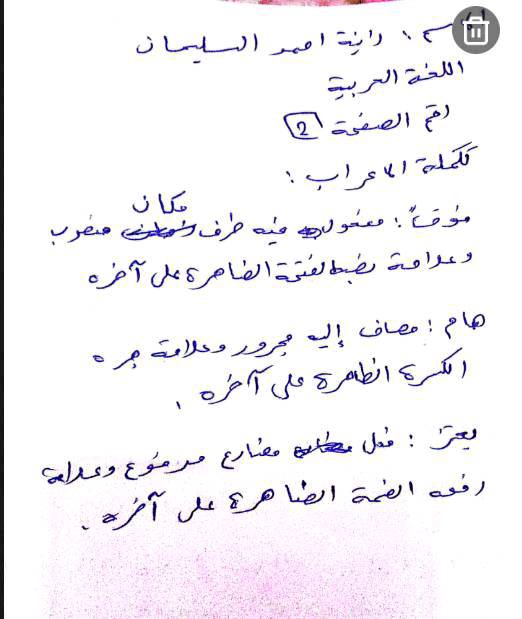 الاسم: رانية احمد السليمان
اللغة العربية
رقم الصفحة 2
تكملة الاعراب:
مكان
فوقَ: مفعول فيه ظرف منصوب
وعلامة نصبه الفتحة الظاهرة على آخره
هام: مضاف إليه مجرور وعلامة جره
الكسرة الظاهرة على آخره.
يعتز: فعل مضارع مرفوع وعلامة
رفعه الضمة الظاهرة على آخره.